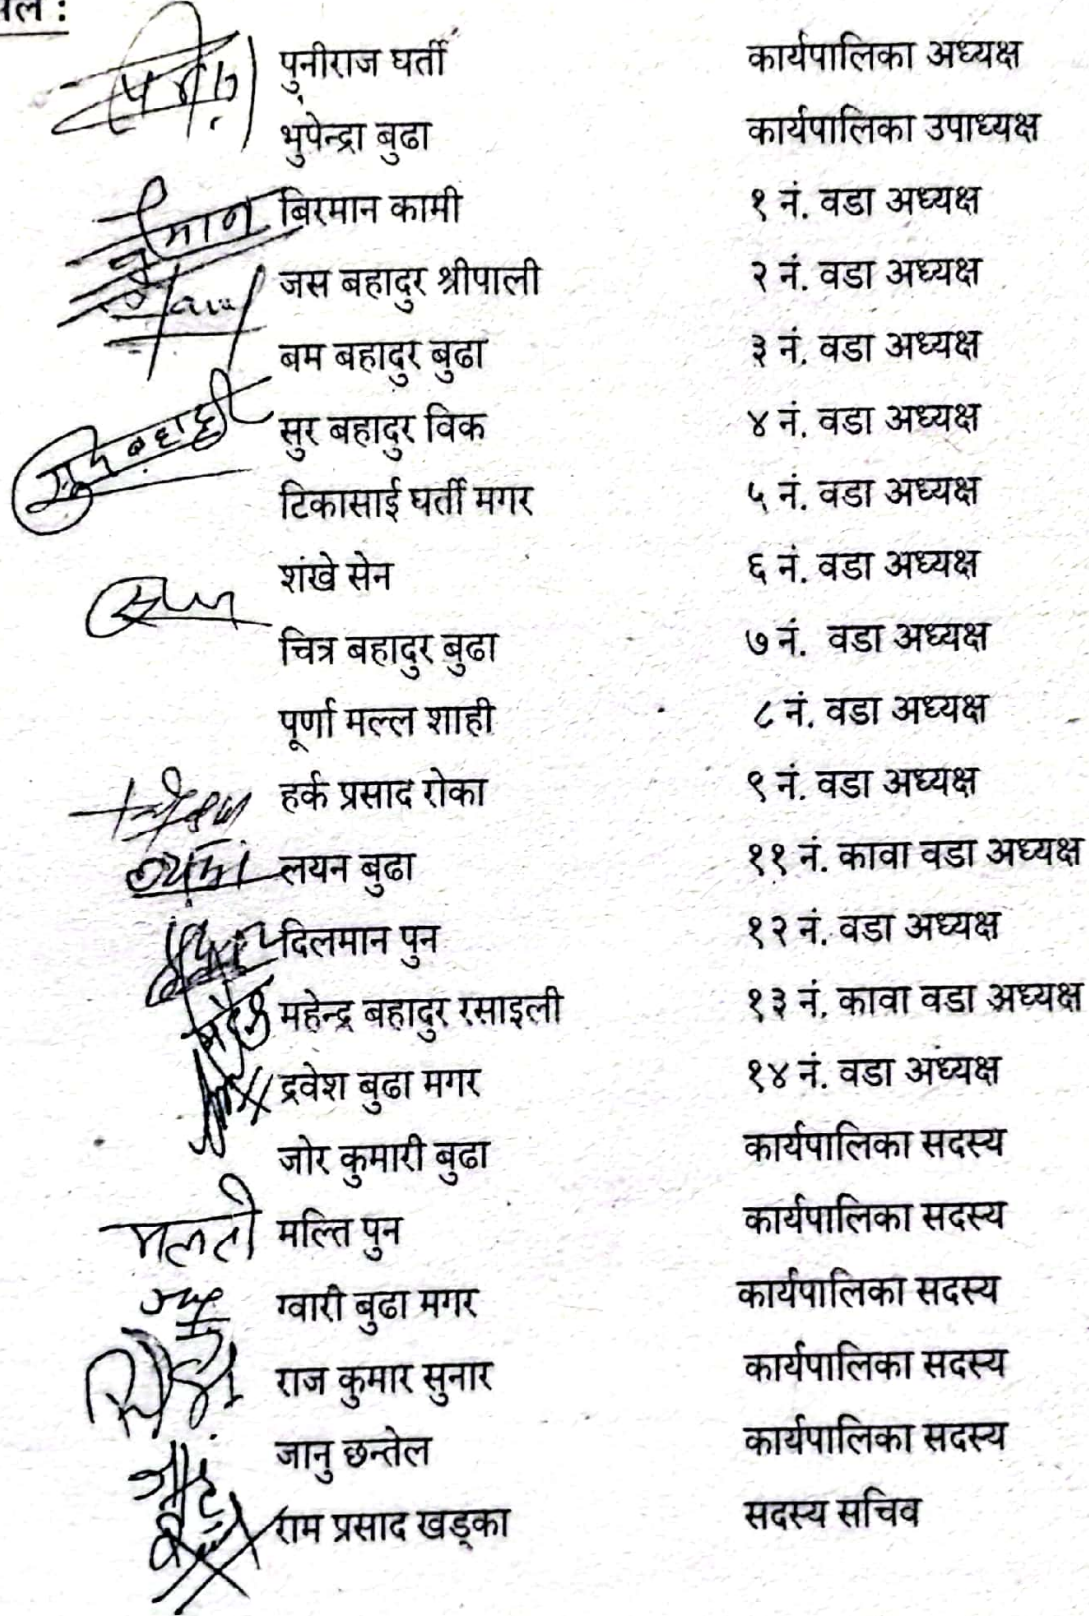 पुनीराज घर्ती कार्यपालिका अध्यक्ष
भुपेन्द्रा बुढा कार्यपालिका उपाध्यक्ष
बिरमान कामी १ नं. वडा अध्यक्ष
जस बहादुर श्रीपाली २ नं. वडा अध्यक्ष
बम बहादुर बुढा ३ नं. वडा अध्यक्ष
सुर बहादुर विक ४ नं. वडा अध्यक्ष
टिकासाई घर्ती मगर ५ नं. वडा अध्यक्ष
शंखे सेन ६ नं. वडा अध्यक्ष
चित्र बहादुर बुढा ७ नं. वडा अध्यक्ष
पूर्णा मल्ल शाही ८ नं. वडा अध्यक्ष
हर्क प्रसाद रोका ९ नं. वडा अध्यक्ष
लयन बुढा ११ नं. कावा वडा अध्यक्ष
दिलमान पुन १२ नं. वडा अध्यक्ष
महेन्द्र बहादुर रसाइली १३ नं. कावा वडा अध्यक्ष
द्रवेश बुढा मगर १४ नं. वडा अध्यक्ष
जोर कुमारी बुढा कार्यपालिका सदस्य
मलती मल्ति पुन कार्यपालिका सदस्य
ग्वारी बुढा मगर कार्यपालिका सदस्य
राज कुमार सुनार कार्यपालिका सदस्य
जानु छन्तेल कार्यपालिका सदस्य
राम प्रसाद खड्का सदस्य सचिव